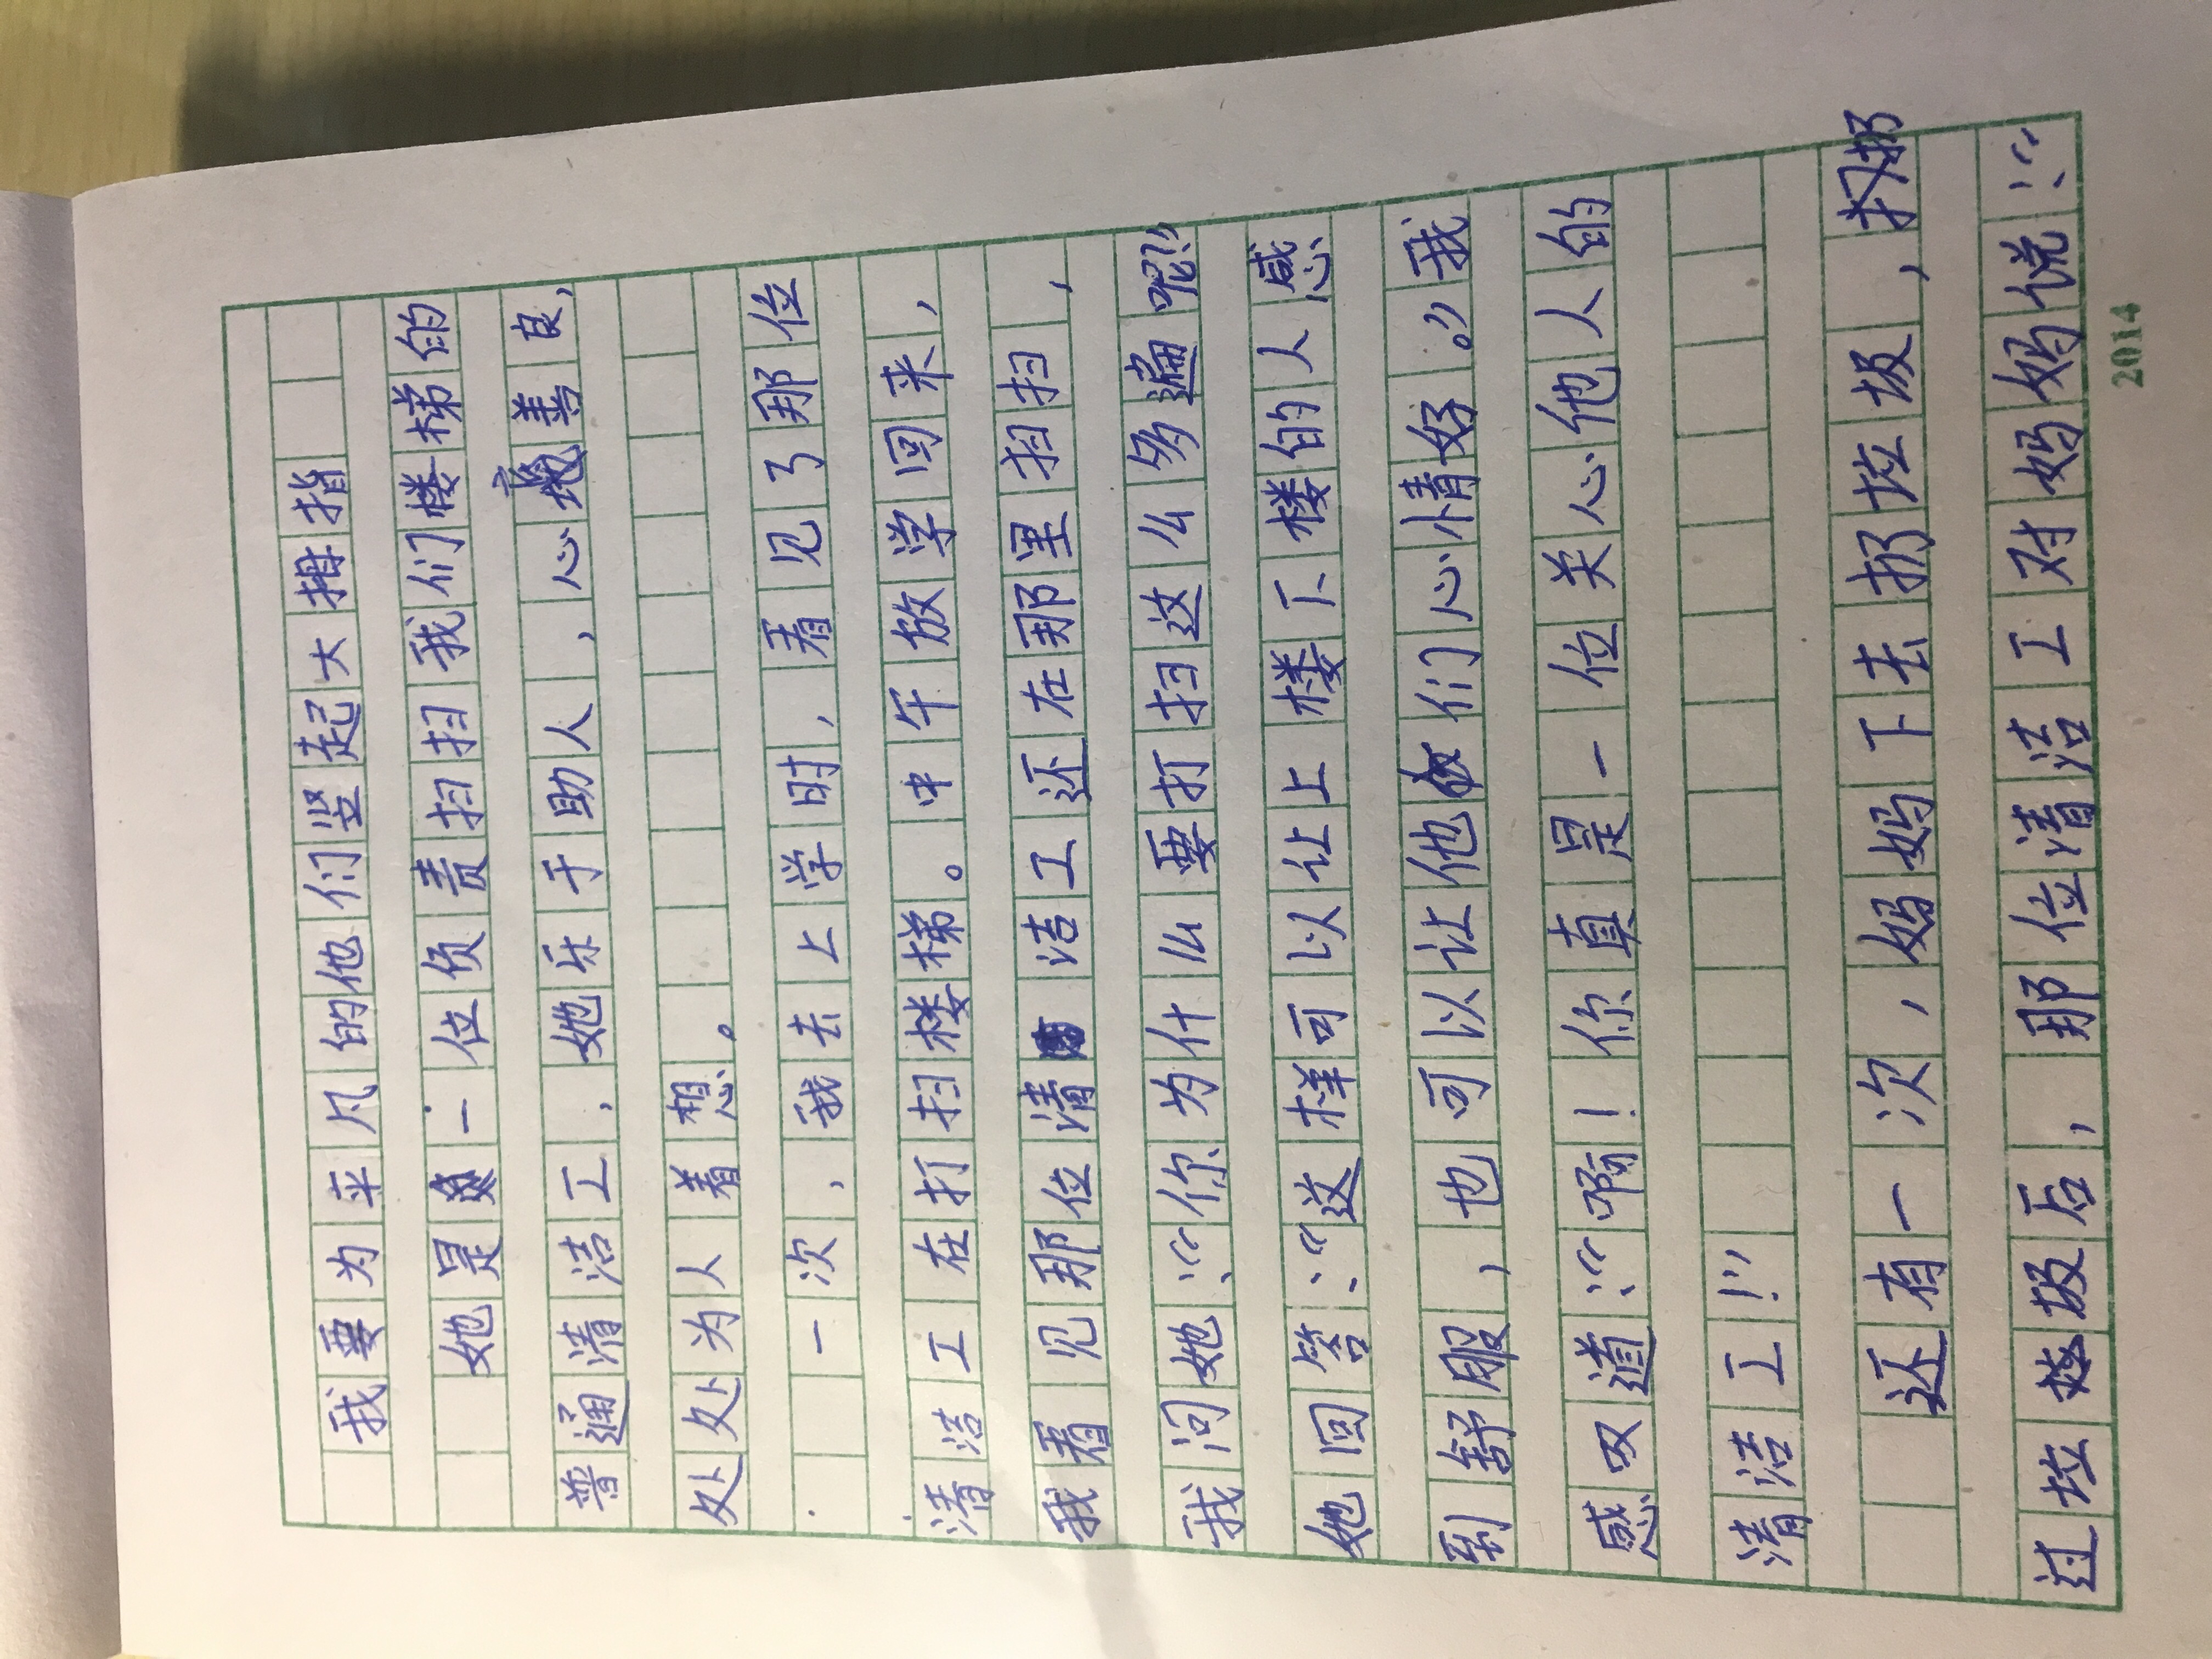 我要为平凡的他们竖起大拇指
她是一位负责扫扫我们楼梯的
普通清洁工，她乐于助人，心善良，
处处为人着想。
一次，我去上学时，看见了那位
清洁工在打扫楼梯。中午放学回来，
我看见那位清洁工还在那里扫扫，
我问她：“你为什么要打扫这么多遍呢？”
她回答：“这样可以让上楼下楼的人感
到舒服，也可以让他们心情好。”我
感叹道：“啊！你真是一位关心他人的
清洁工！”
还有一次，妈妈下去扔垃圾，扔
过垃圾后，那位清洁工对妈妈说：“
2014